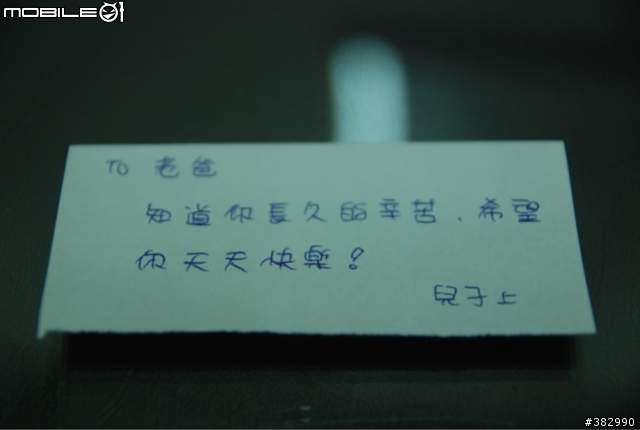 MOBILE01
TO 老爸
知道你長久的辛苦,希望
你天天快樂!
兒子上
#382990